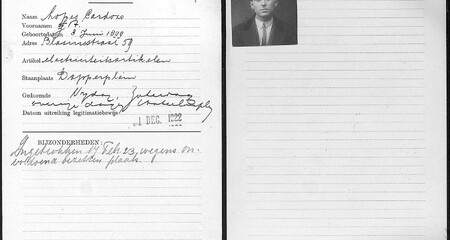 Naam Lopes Cardozo
Voornamen:
Geboortedatum 3 Juni 1899
Adres Blasiusstraat 59
Artikel electriciteitsartikelen
Staanplaats Dapperplein
Vrydag, Zaterdag
overige dagen
Datum uitreiking legitimatiebewijs:
1 DEC. 1922
BIJZONDERHEDEN:
Ingetrokken 17 Feb. 23, wegens on-
voldoend bezetten plaats.